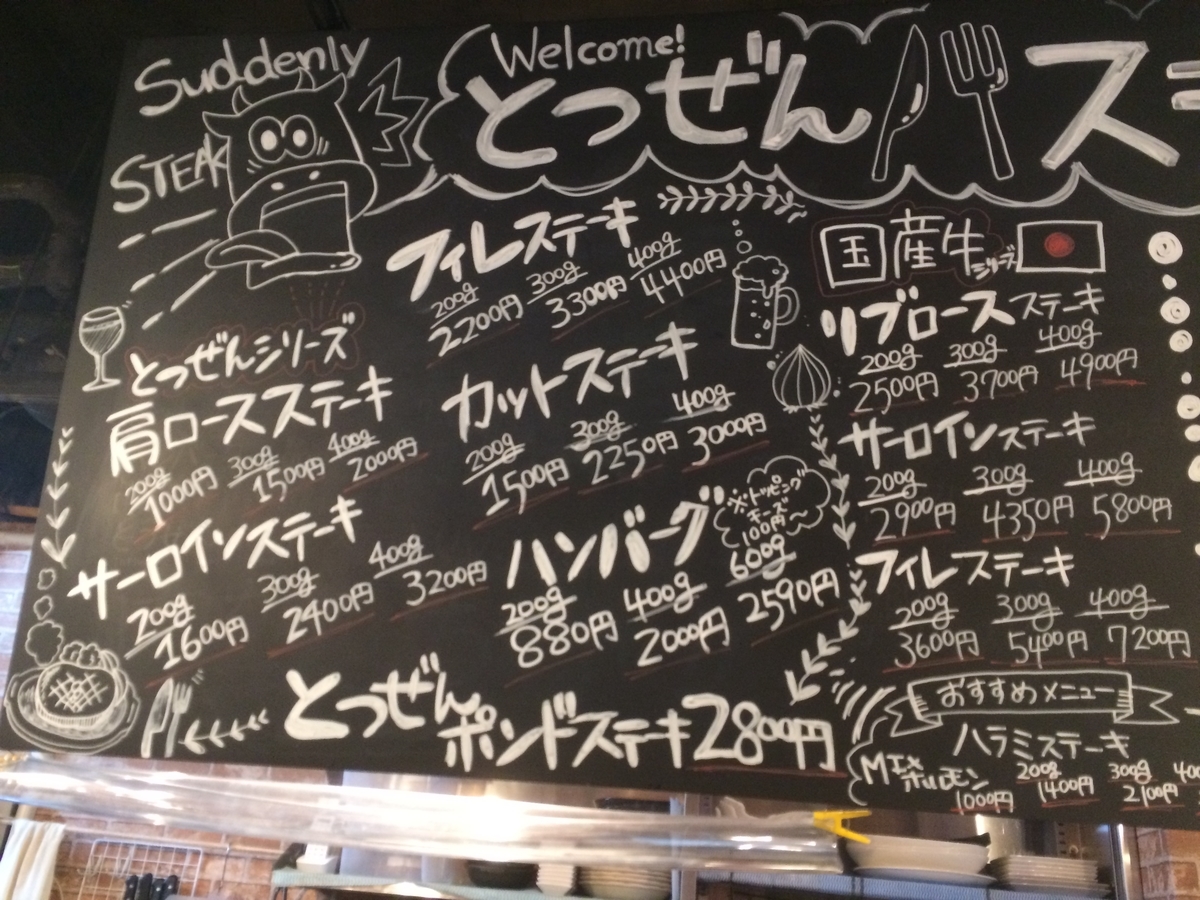 Suddenly
STEAK
Welcome!
とつぜん ス
とつぜんシリーズ
肩ロースステーキ
200g 300g 400g
1000円 1500円 2000円
サーロインステーキ
200g 300g 400g
1600円 2400円 3200円
フィレステーキ
200g 300g 400g
2200円 3300円 4400円
カットステーキ
200g 300g 400g
1500円 2250円 3000円
ハンバーグ
※トッピング
チーズ
100円〜
200g 400g 600g
880円 2000円 2590円
とつぜん
ポンドステーキ2800円
国産牛シリーズ
リブロースステーキ
200g 300g 400g
2500円 3700円 4900円
サーロインステーキ
200g 300g 400g
2900円 4350円 5800円
フィレステーキ
200g 300g 400g
3600円 5400円 7200円
おすすめメニュー
ハラミステーキ
200g 300g
1400円 2100円
1000円